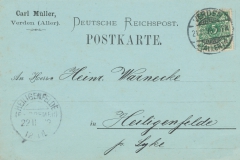 Carl Müller,
Verden (Aller).
DEUTSCHE REICHSPOST.
POSTKARTE.
An Herrn Heinr. Warnecke
in Heiligenfelde
p. Syke